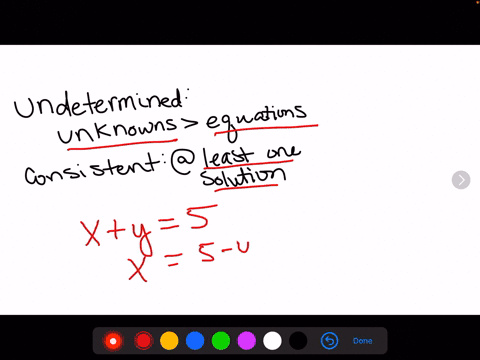 Undetermined:
unknowns > equations
Consistent: @ least one
solution
x + y = 5
x = 5 -
Done